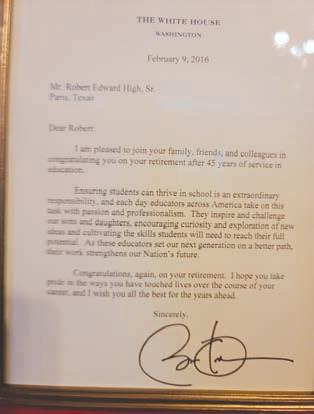 THE WHITE HOUSE
WASHINGTON
February 9, 2016
Mr. Robert Edward High, Sr.
Paris, Texas
Dear Robert:
I am pleased to join your family, friends, and colleagues in
congratulating you on your retirement after 45 years of service in
education.
Ensuring students can thrive in school is an extraordinary
responsibility, and each day educators across America take on this
task with passion and professionalism. They inspire and challenge
our sons and daughters, encouraging curiosity and exploration of new
ideas and cultivating the skills students will need to reach their full
potential. As these educators set our next generation on a better path,
their work strengthens our Nation's future.
Congratulations, again, on your retirement. I hope you take
pride in the ways you have touched lives over the course of your
career, and I wish you all the best for the years ahead.
Sincerely,